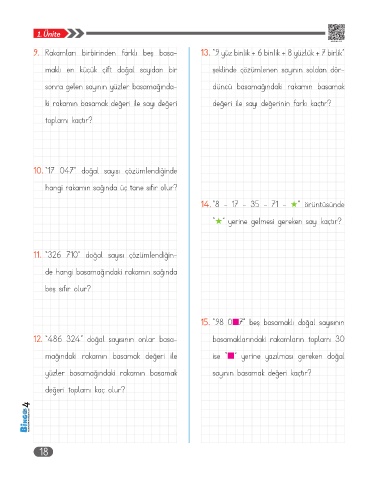 1. Ünite
9. Rakamları birbirinden farklı beş basa-
maklı en küçük çift doğal sayıdan bir
sonra gelen sayının yüzler basamağında-
ki rakamın basamak değeri ile sayı değeri
toplamı kaçtır?
10. "17 047" doğal sayısı çözümlendiğinde
hangi rakamın sağında üç tane sıfır olur?
11. "326 710" doğal sayısı çözümlendiğin-
de hangi basamağındaki rakamın sağında
beş sıfır olur?
12. "486 324" doğal sayısının onlar basa-
mağındaki rakamın basamak değeri ile
yüzler basamağındaki rakamın basamak
değeri toplamı kaç olur?
13. "9 yüz binlik + 6 binlik + 8 yüzlük + 7 birlik"
şeklinde çözümlenen sayının soldan dör-
düncü basamağındaki rakamın basamak
değeri ile sayı değerinin farkı kaçtır?
14. "8 - 17 - 35 - 71 - ★" örüntüsünde
"★" yerine gelmesi gereken sayı kaçtır?
15. "98 0■7" beş basamaklı doğal sayısının
basamaklarındaki rakamların toplamı 30
ise "■" yerine yazılması gereken doğal
sayının basamak değeri kaçtır?
BİNGO 4
18